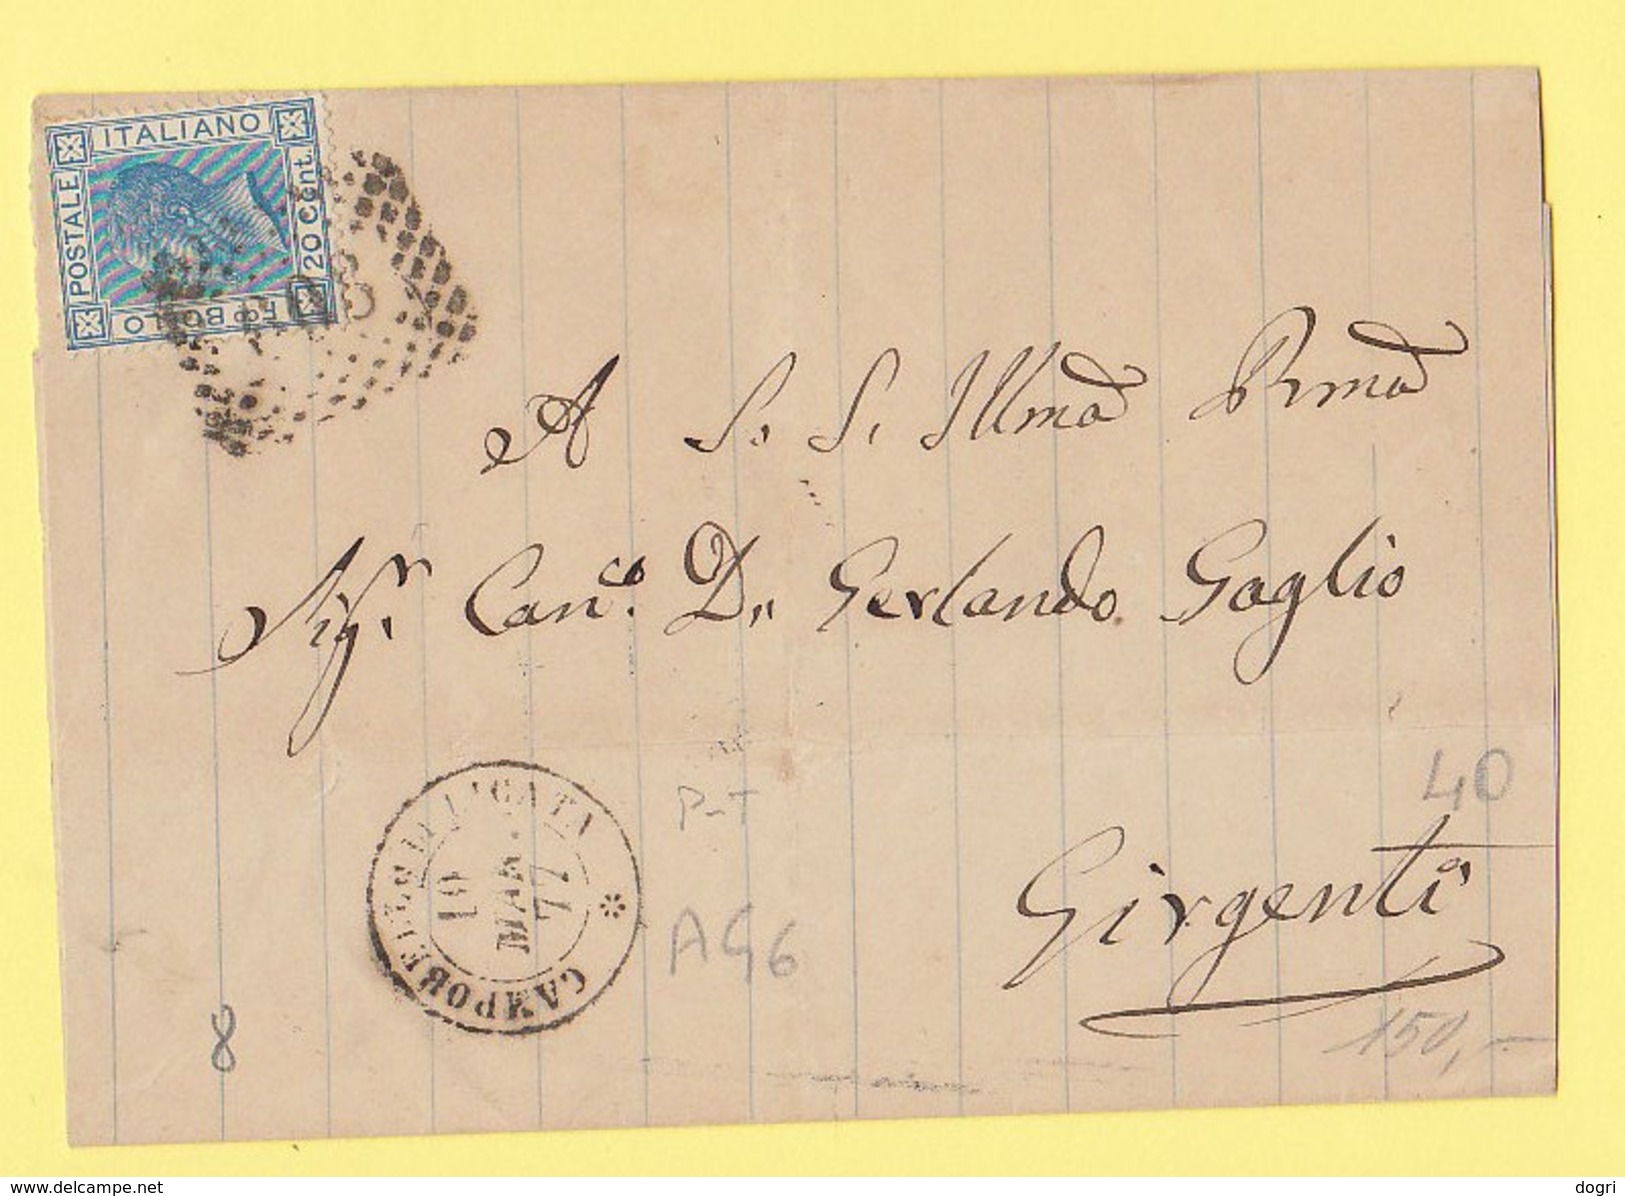 ITALIANO
POSTALE
20 Cent.
Fco BOLLO
A S. S. Illma Rma
Sigr. Canco. Dn. Gerlando Gaglio
Girgenti
CAMPOBELLO DI LICATA
10
MAR.
77
P-T
AG6
40
150,-
8
www.delcampe.net
dogri